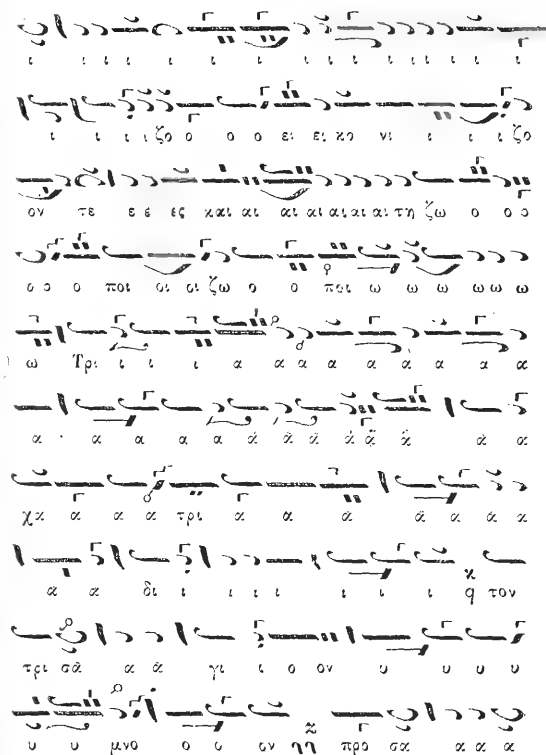 ι ι ι ι ι ι ι ι ι ι ι ι ι ι ι
ι ι ι ι ζο ο ο ο ει ει κο νι ι ι ι ζο
ον τε ε ε ες και αι αι αι αι αι αι τη ζω ο ο ο
ο ο ο ποι οι οι ζω ο ο ποι ω ω ω ω ω ω
ω Τρι ι ι ι α α α α α α α α α
α α α α α α ἀ ἀ ἀ ἀ ἀ ἀ ἀ α
χα α α α τρι α α ἀ ἀ α ἀ α
α α δι ι ι ι ι ι ι ι q τον
τρι σὰ α ἀ γι ι ο ον υ υ υ υ
υ υ μνο ο ο ον προ σα α α α